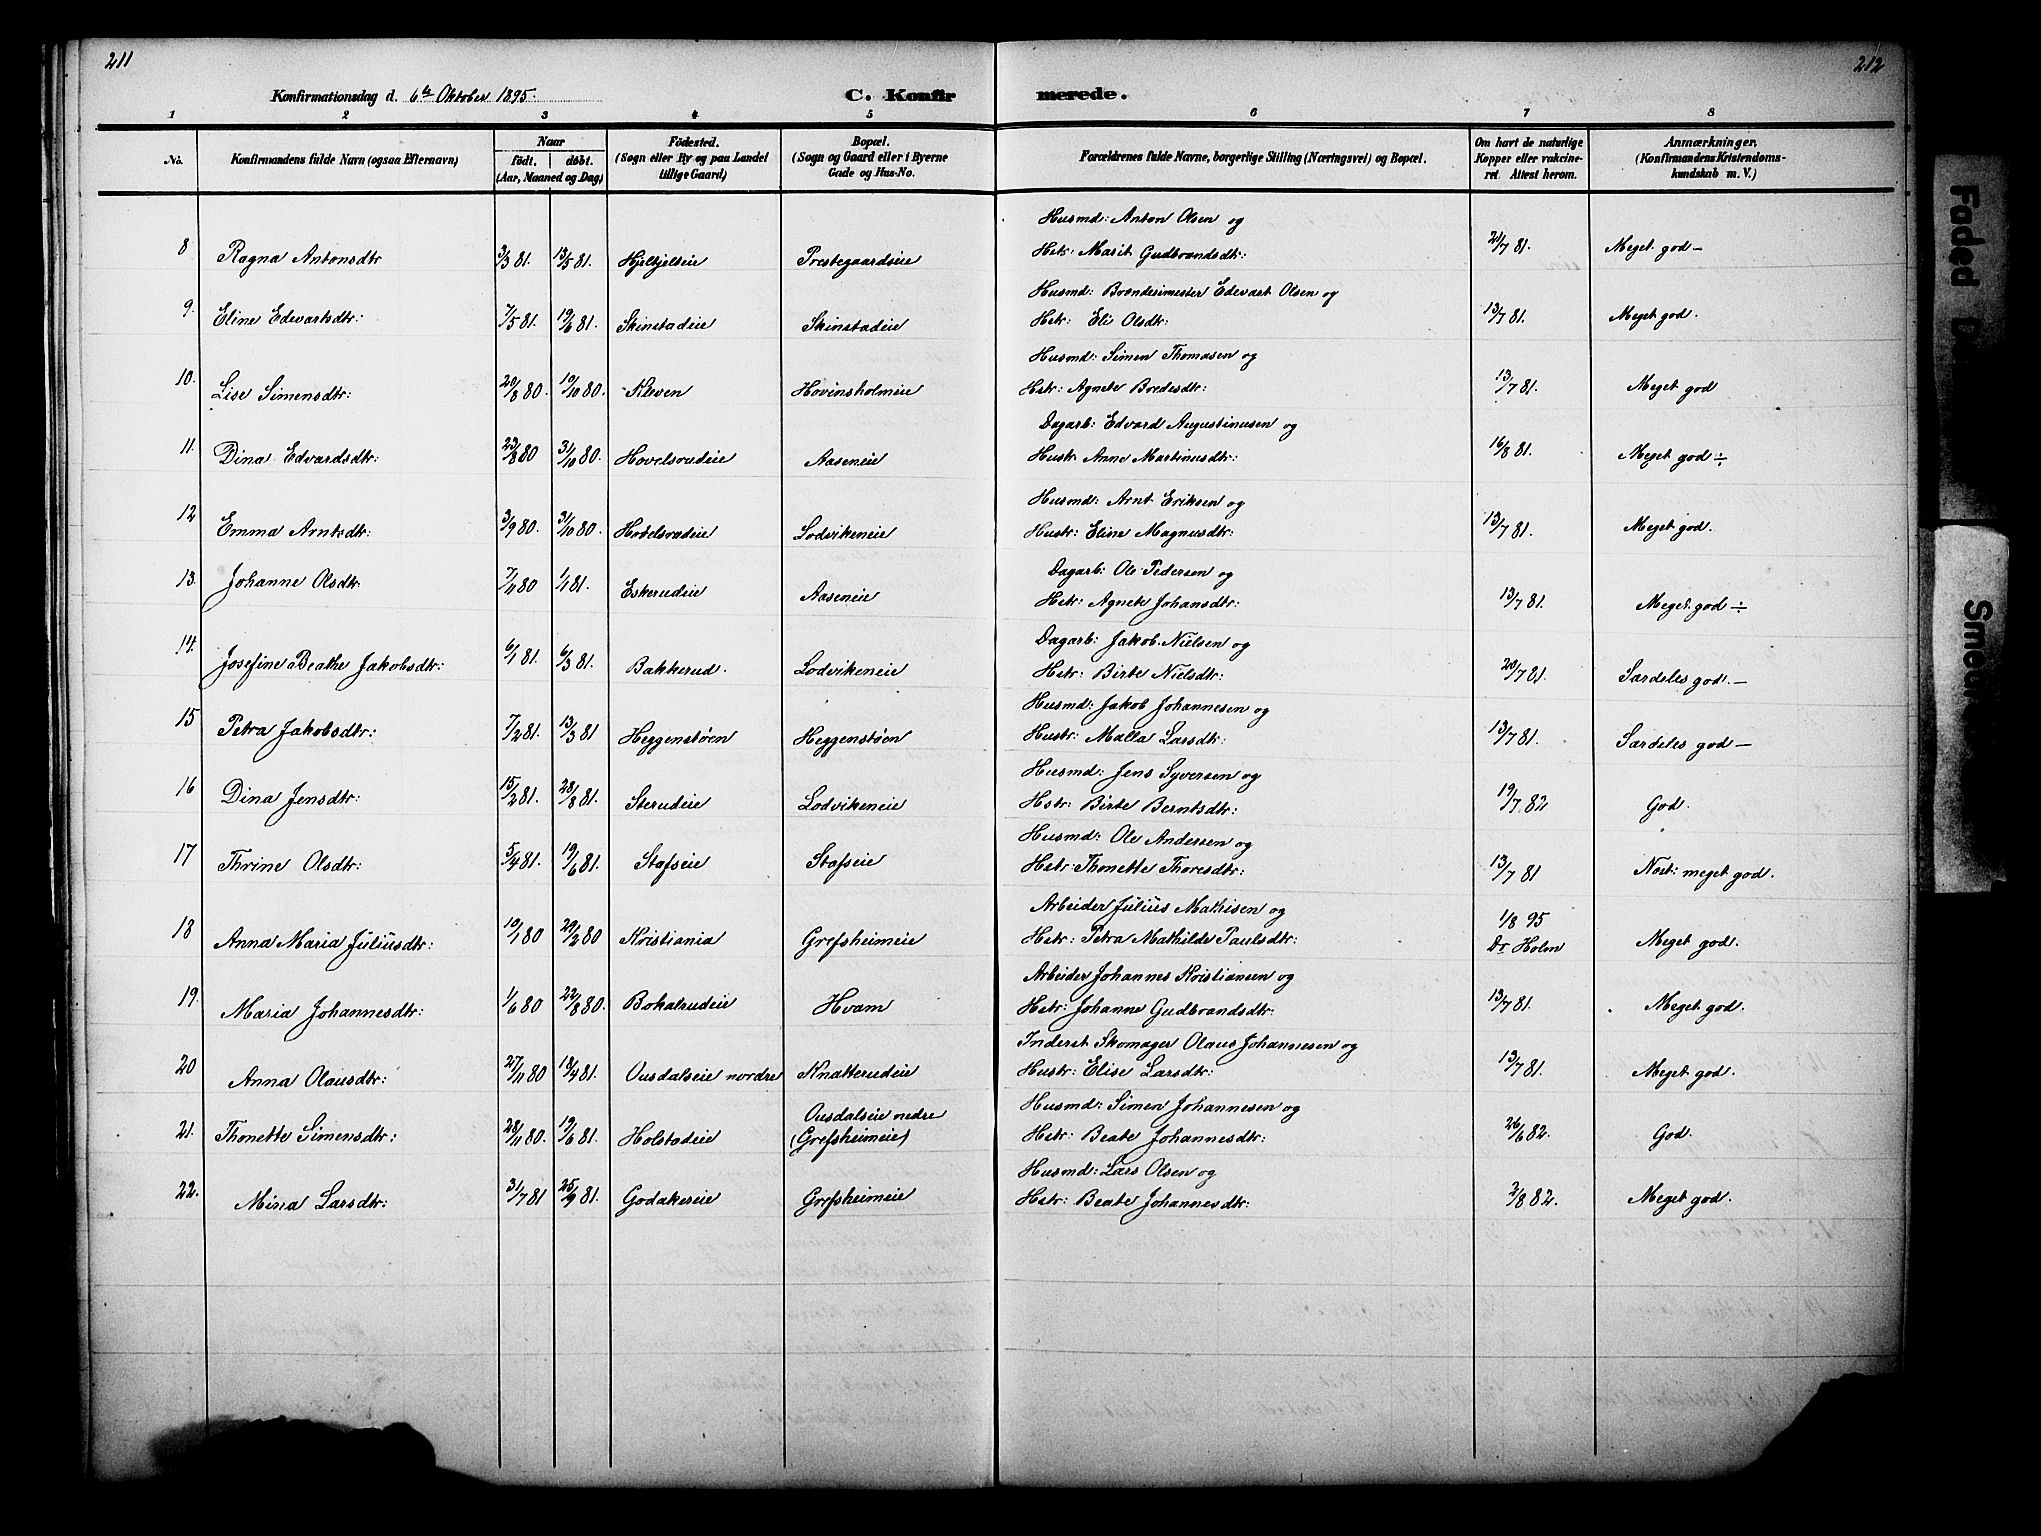 211
212
Konfirmationsdag d. 6te Oktober 1895.
C. Konfirmerede.
1 2 3 4 5 6 7 8
No.
Konfirmandens fulde Navn (ogsaa Efternavn)
Naar
født. døbt.
(Aar, Maaned og Dag)
Fødested.
(Sogn eller By og paa Landet
tillige Gaard)
Bopæl.
(Sogn og Gaard eller i Byerne
Gade og Hus-No.
Forældrenes fulde Navne, borgerlige Stilling (Næringsvei) og Bopæl.
Om havt de naturlige
Kopper eller vakcine-
ret. Attest herom.
Anmærkninger.
(Konfirmandens Kristendoms-
kundskab m. V.)
Husmd: Anton Olsen og
8 Ragna Antonsdtr 3/3 81. 13/5 81. Hjelkjelseie Prestegaardseie Hstr: Marit Gudbrandsdtr: 21/7 81. Meget god –
Husmd: Brøndesmester Edevart Olsen og
9. Eline Edevartsdtr: 7/5 81. 19/6 81. Skinstadeie Skinstadeie Hstr: Eli Olsdtr: 13/7 81. Meget god.
Husmd: Simen Thomasen og
10. Lise Simensdtr: 20/8 80. 19/10 80. Kleven Hovinsholmeie Hstr: Agnete Bredesdtr: 13/7 81. Meget god
Dagarb: Edvard Augustinusen og
11. Dina Edvardsdtr: 23/8 80 31/10 80. Hovelsrudeie Aaseneie Hustr Anne Martinusdtr: 16/8 81. Meget god ÷
Husmd: Arnt Eriksen og
12 Emma Arntsdtr: 3/9 80. 31/10 80. Hovelsrudeie Lodvikeneie Hustr: Eline Magnusdtr: 13/7 81. Meget god.
Dagarb: Ole Pedersen og
13. Johanne Olsdtr: 7/11 80 1/1 81. Eskerudeie Aaseneie Hstr: Agnete Johansdtr: 13/7 81. Meget god ÷
Dagarb: Jakob Nielsen og
14. Josefine Beathe Jakobsdtr: 6/1 81. 6/3 81. Bakkerud. Lodvikeneie Hstr: Birte Nielsdtr: 20/7 81. Særdeles god. –
Husmd: Jakob Johannesen og
15 Petra Jakobsdtr: 7/2 81. 13/3 81 Heggenstøen Heggenstøen Hustr: Malla Larsdtr: 13/7 81. Særdeles god –
Husmd: Jens Syversen og
16 Dina Jensdtr: 15/2 81. 28/8 81. Sterudeie Lodvikeneie Hstr: Birte Berntsdtr: 19/7 82 God.
Husmd: Ole Andersen og
17 Thrine Olsdtr: 5/4 81. 19/6 81. Stafseie Stafseie Hstr: Thonette Thoresdtr: 13/7 81 Næst: meget god.
Arbeider Julius Mathisen og
18 Anna Maria Juliusdtr: 10/1 80 29/2 80 Kristiania Grefsheimeie Hstr: Petra Mathilde Paulsdtr: 1/8 95 Meget god.
Dr Holm
Arbeider Johannes Kristiansen og
19. Maria Johannesdtr: 1/6 80 22/8 80. Bokalrudeie Hvam Hstr: Johanne Gudbrandsdtr: 13/7 81. Meget god.
Inderst Skomager Olaus Johannesen og
20 Anna Olausdtr: 27/11 80 18/4 81. Ousdalseie nordre Knatterudeie Hustr: Elise Larsdtr: 13/7 81. Meget god.
Husmd: Simen Johannesen og
Ousdalseie nedre
21. Thonette Simensdtr: 28/11 80. 19/6 81. Holstadeie (Grefsheimeie) Hstr: Beate Johannesdtr: 26/6 82. God.
Husmd: Lars Olsen og
22. Mina Larsdtr: 31/7 81 25/9 81. Godakereie Grefsheimeie Hstr: Beate Johannesdtr: 2/8 82. Meget god.
Faded